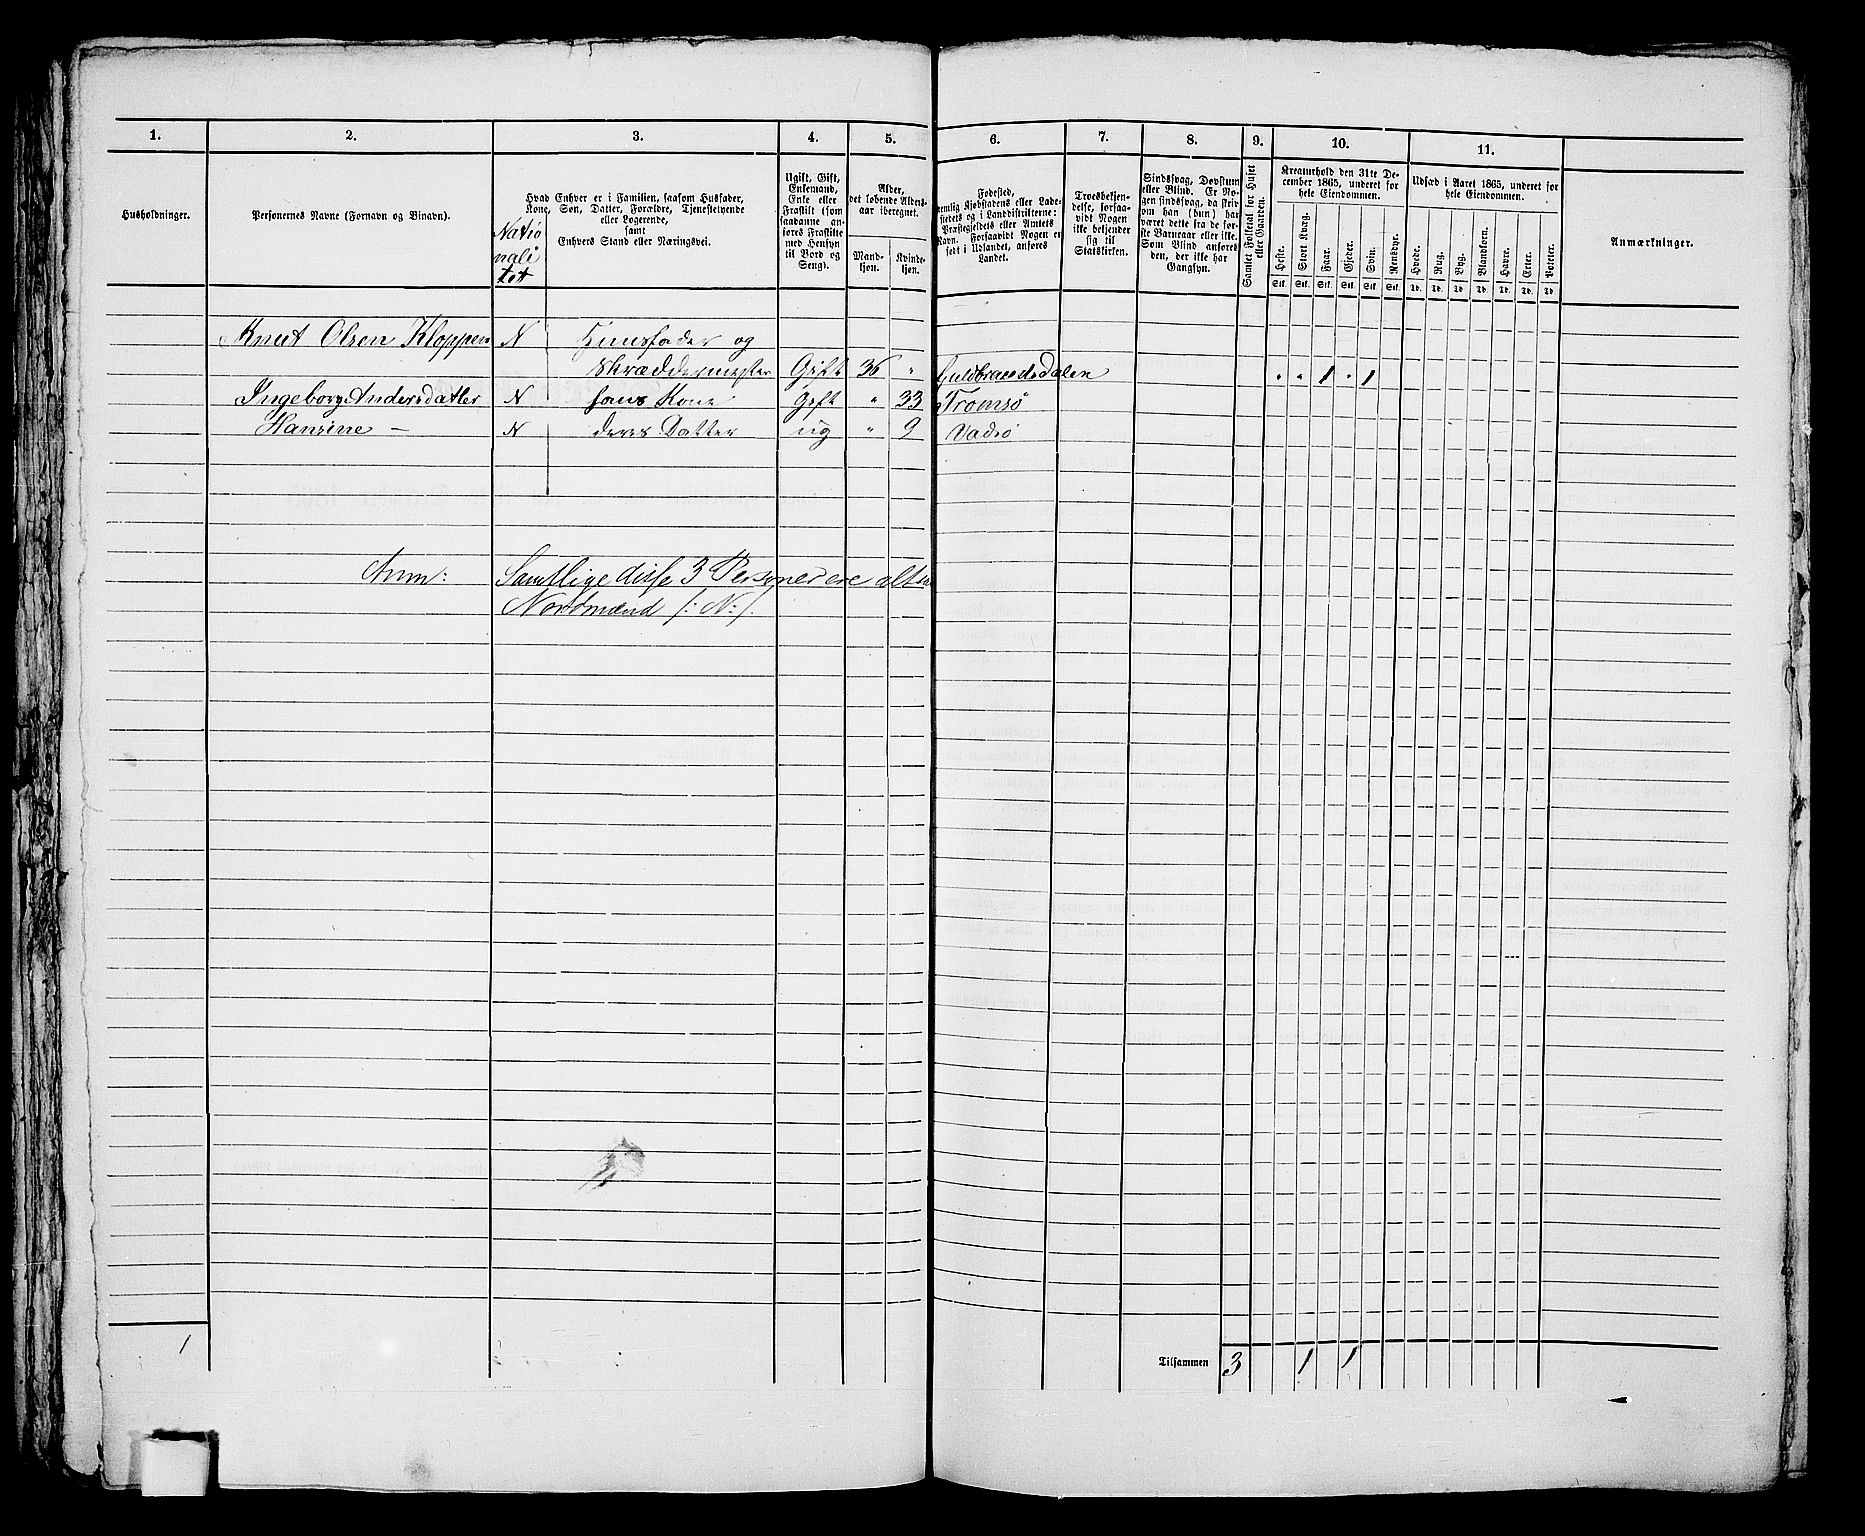 1. 2. 3. 4. 5. 6. 7. 8. 9. 10. 11.
Husholdninger.
Personernes Navne (Fornavn og Binavn).
Hvad Enhver er i Familien, saasom Husfader,
Kone, Søn, Datter, Forældre, Tjenestetyende
eller Logerende,
samt
Enhvers Stand eller Næringsvei.
Natio
nali
tet
Ugift, Gift,
Enkemand,
Enke eller
Fraskilt (som
saadanne an-
føres Fraskilte
med Hensyn
til Bord og
Seng).
Alder,
det løbende Alders-
aar iberegnet.
Mand-
kjøn.
Kvinde-
kjøn.
Fødested,
nemlig Kjøbstadens eller Lade-
stedets og i Landdistrikterne:
Præstegjeldets eller Amtets
Navn. Forsaavidt Nogen er
født i Udlandet, anføres
Landet.
Troesbekjen-
delse, forsaa-
vidt Nogen
ikke bekjender
sig til
Statskirken.
Sindssvag, Døvstum
eller Blind. Er No-
gen sindssvag, da skriv
om han (hun) har
været dette fra de før-
ste Barneaar eller ikke.
Som Blind anføres
den, der ikke har
Gangsyn.
Samlet Folketal for Huset
eller Gaarden.
Kreaturhold den 31te De-
cember 1865, underet for
hele Eiendommen.
Heste. Stort Kvæg. Faar. Gjeder. Svin. Rensdyr.
Stk. Stk. Stk. Stk. Stk. Stk.
Udsæd i Aaret 1865, underet for
hele Eiendommen.
Hvede. Rug. Byg. Blandkorn. Havre. Erter. Poteter.
Td. Td. Td. Td. Td. Td. Td.
Anmærkninger.
Knut Olsen Kloppen N Huusfader og
Skræddermester Gift 36 " Guldbrandsdalen " " 1 " 1
Ingeborg Andersdatter N hans Kone Gift " 33 Tromsø
Hansine – N deres Datter ug " 9 Vadsø
Anm: Samtlige disse 3 Personer ere altsaa
Nordmænd /: N :/.
1 Tilsammen 3 1 1